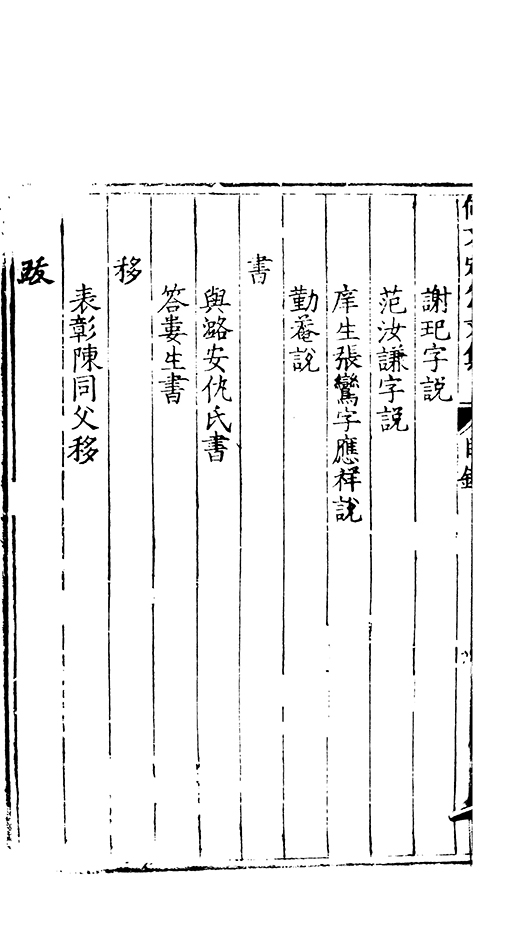 謝玘字説
范汝謙字説
庠生張鸞字應祥説
勤菴説
書
與潞安仇氏書
答婁生書
移
表彰陳同父移
跋